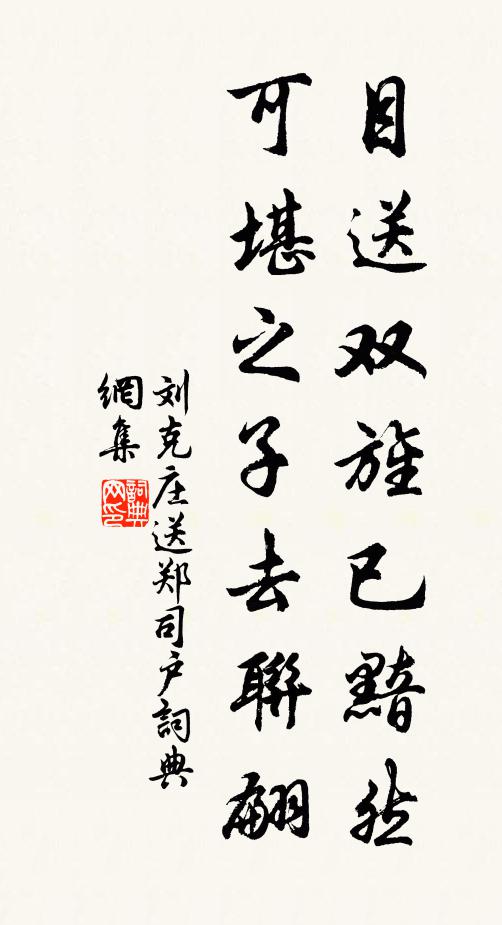 目送双旌已黯然
可堪之子去聯翩
刘克庄送郑司户詞典
網集
詞典
网印